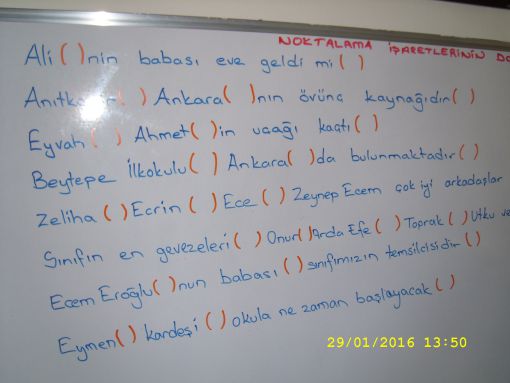 NOKTALAMA İŞARETLERİNİN
Ali ( )nin babası eve geldi mi ( )
Anıtkabir ( ) Ankara ( )nın övünç kaynağıdır ( )
Eyvah ( ) Ahmet ( )in uçağı kaçtı ( )
Beytepe İlkokulu ( ) Ankara ( )da bulunmaktadır ( )
Zeliha ( ) Ecrin ( ) Ece ( ) Zeynep Ecem çok iyi arkadaşlar
Sınıfın en gevezeleri ( ) Onur ( ) Arda Efe ( ) Toprak ( ) Utku ve
Ecem Eroğlu ( )nun babası ( ) sınıfımızın temsilcisidir ( )
Eymen ( ) kardeşi ( ) okula ne zaman başlayacak ( )
29/01/2016 13:50